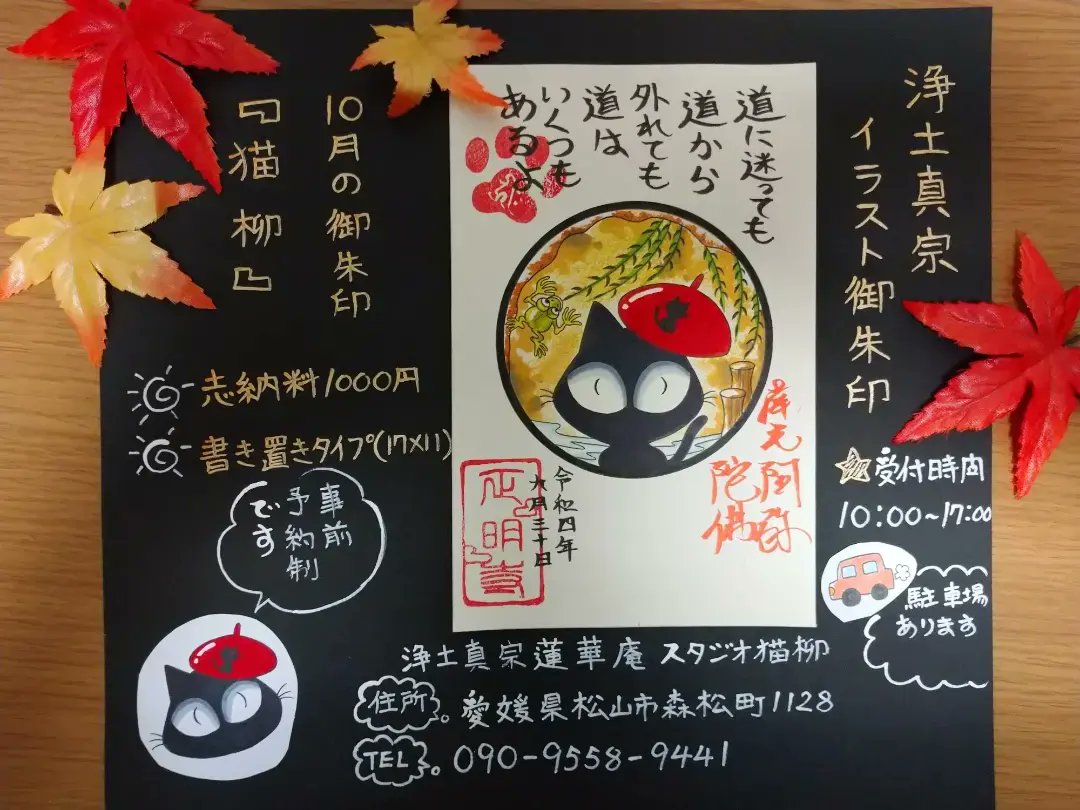 浄土真宗
イラスト御朱印
受付時間
10:00~17:00
駐車場
あります
道に迷っても
道から
外れても
道は
いくつも
あるよ
南无阿弥
陀佛
令和四年
六月三十日
正明寺
10月の御朱印
『猫柳』
志納料1000円
書き置きタイプ(17×11)
事前
予約制
です
浄土真宗蓮華庵 スタジオ猫柳
住所 愛媛県松山市森松町1128
TEL 090-9558-9441